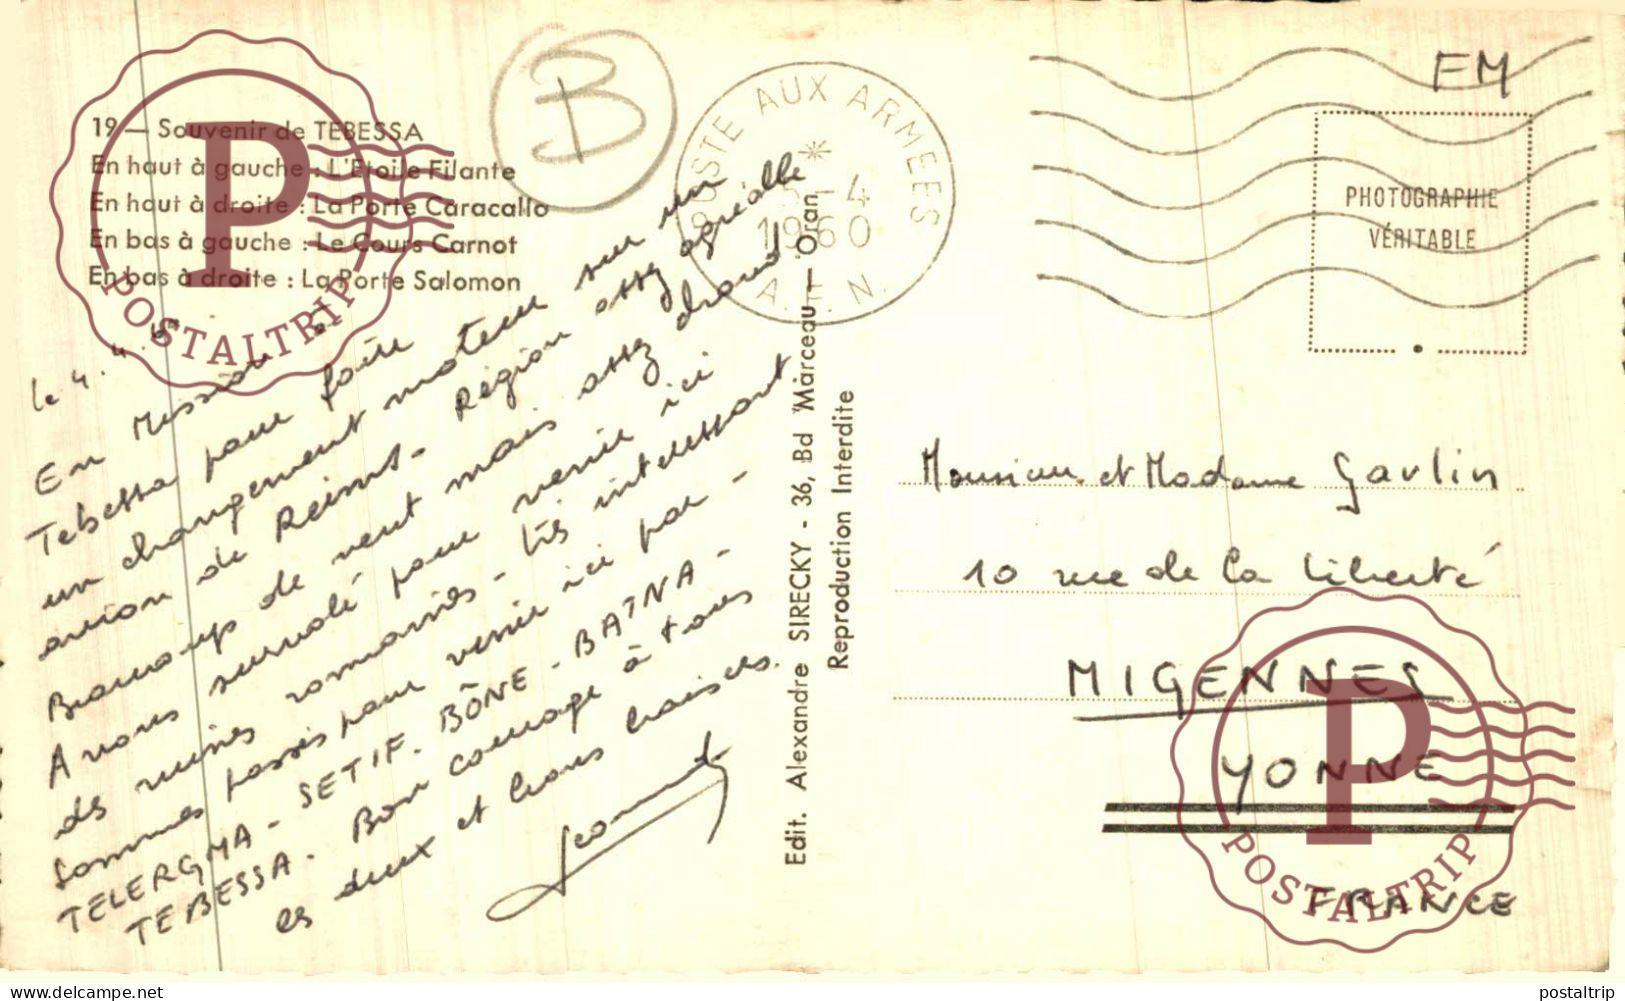 19 — Souvenir de TEBESSA
En haut à gauche : L'Etoile Filante
En haut à droite : La Porte Caracallo
En bas à gauche : Le Cours Carnot
En bas à droite : La Porte Salomon
B
POSTE AUX ARMEES
5-4
1960
A.F.N.
FM
PHOTOGRAPHIE
VÉRITABLE
le 4.4.
En Mission à
Tebessa pour faire
un changement moteur sur un
avion de Reims. Région assez agréable
Beaucoup de vent mais assez chaud
A nous survolé pour venir ici
des ruines romaines - très intéressant
Sommes passés pour venir ici par -
TELERGMA - SETIF - BÔNE - BATNA -
TEBESSA. Bon courage à tous
les deux et bons baisers.
Edit. Alexandre SIRECKY - 36, Bd Marceau — Oran
Reproduction Interdite
Monsieur et Madame Gavlin
10 rue de la Liberté
MIGENNES
YONNE
FRANCE
P
POSTALTRIP
P
POSTALTRIP
www.delcampe.net
postaltrip